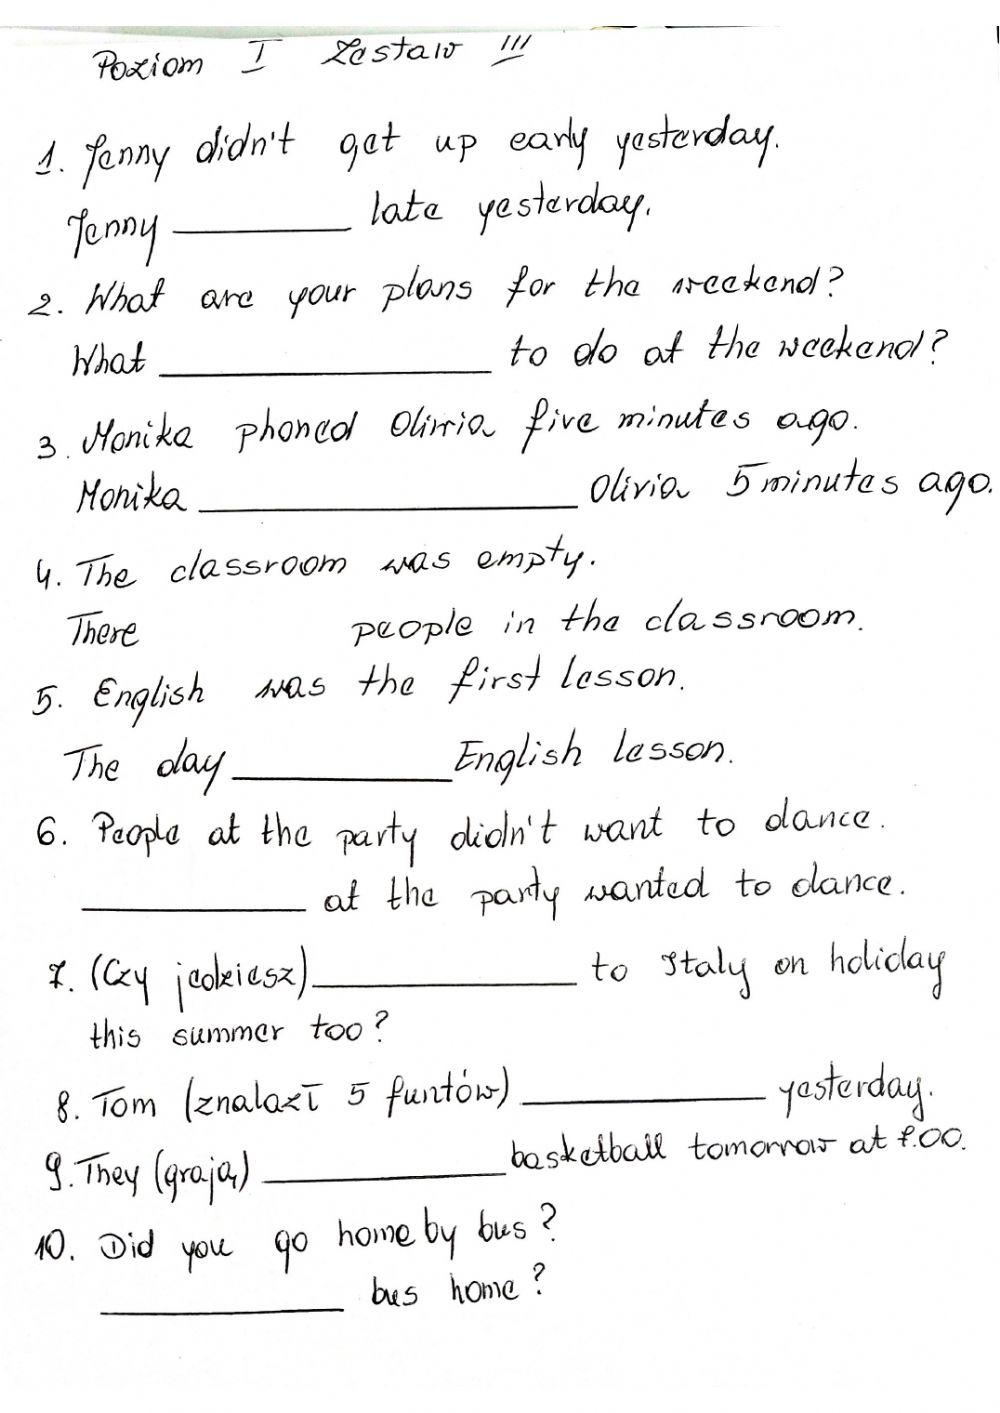 Poziom I Zestaw III
1. Jenny didn't get up early yesterday.
Jenny __________ late yesterday.
2. What are your plans for the weekend?
What __________ to do at the weekend?
3. Monika phoned Olivia five minutes ago.
Monika __________ Olivia 5 minutes ago.
4. The classroom was empty.
There people in the classroom.
5. English was the first lesson.
The day __________ English lesson.
6. People at the party didn't want to dance.
__________ at the party wanted to dance.
7. (Czy jedziesz) __________ to Italy on holiday
this summer too?
8. Tom (znalazł 5 funtów) __________ yesterday.
9. They (grają) __________ basketball tomorrow at 7.00.
10. Did you go home by bus?
__________ bus home?